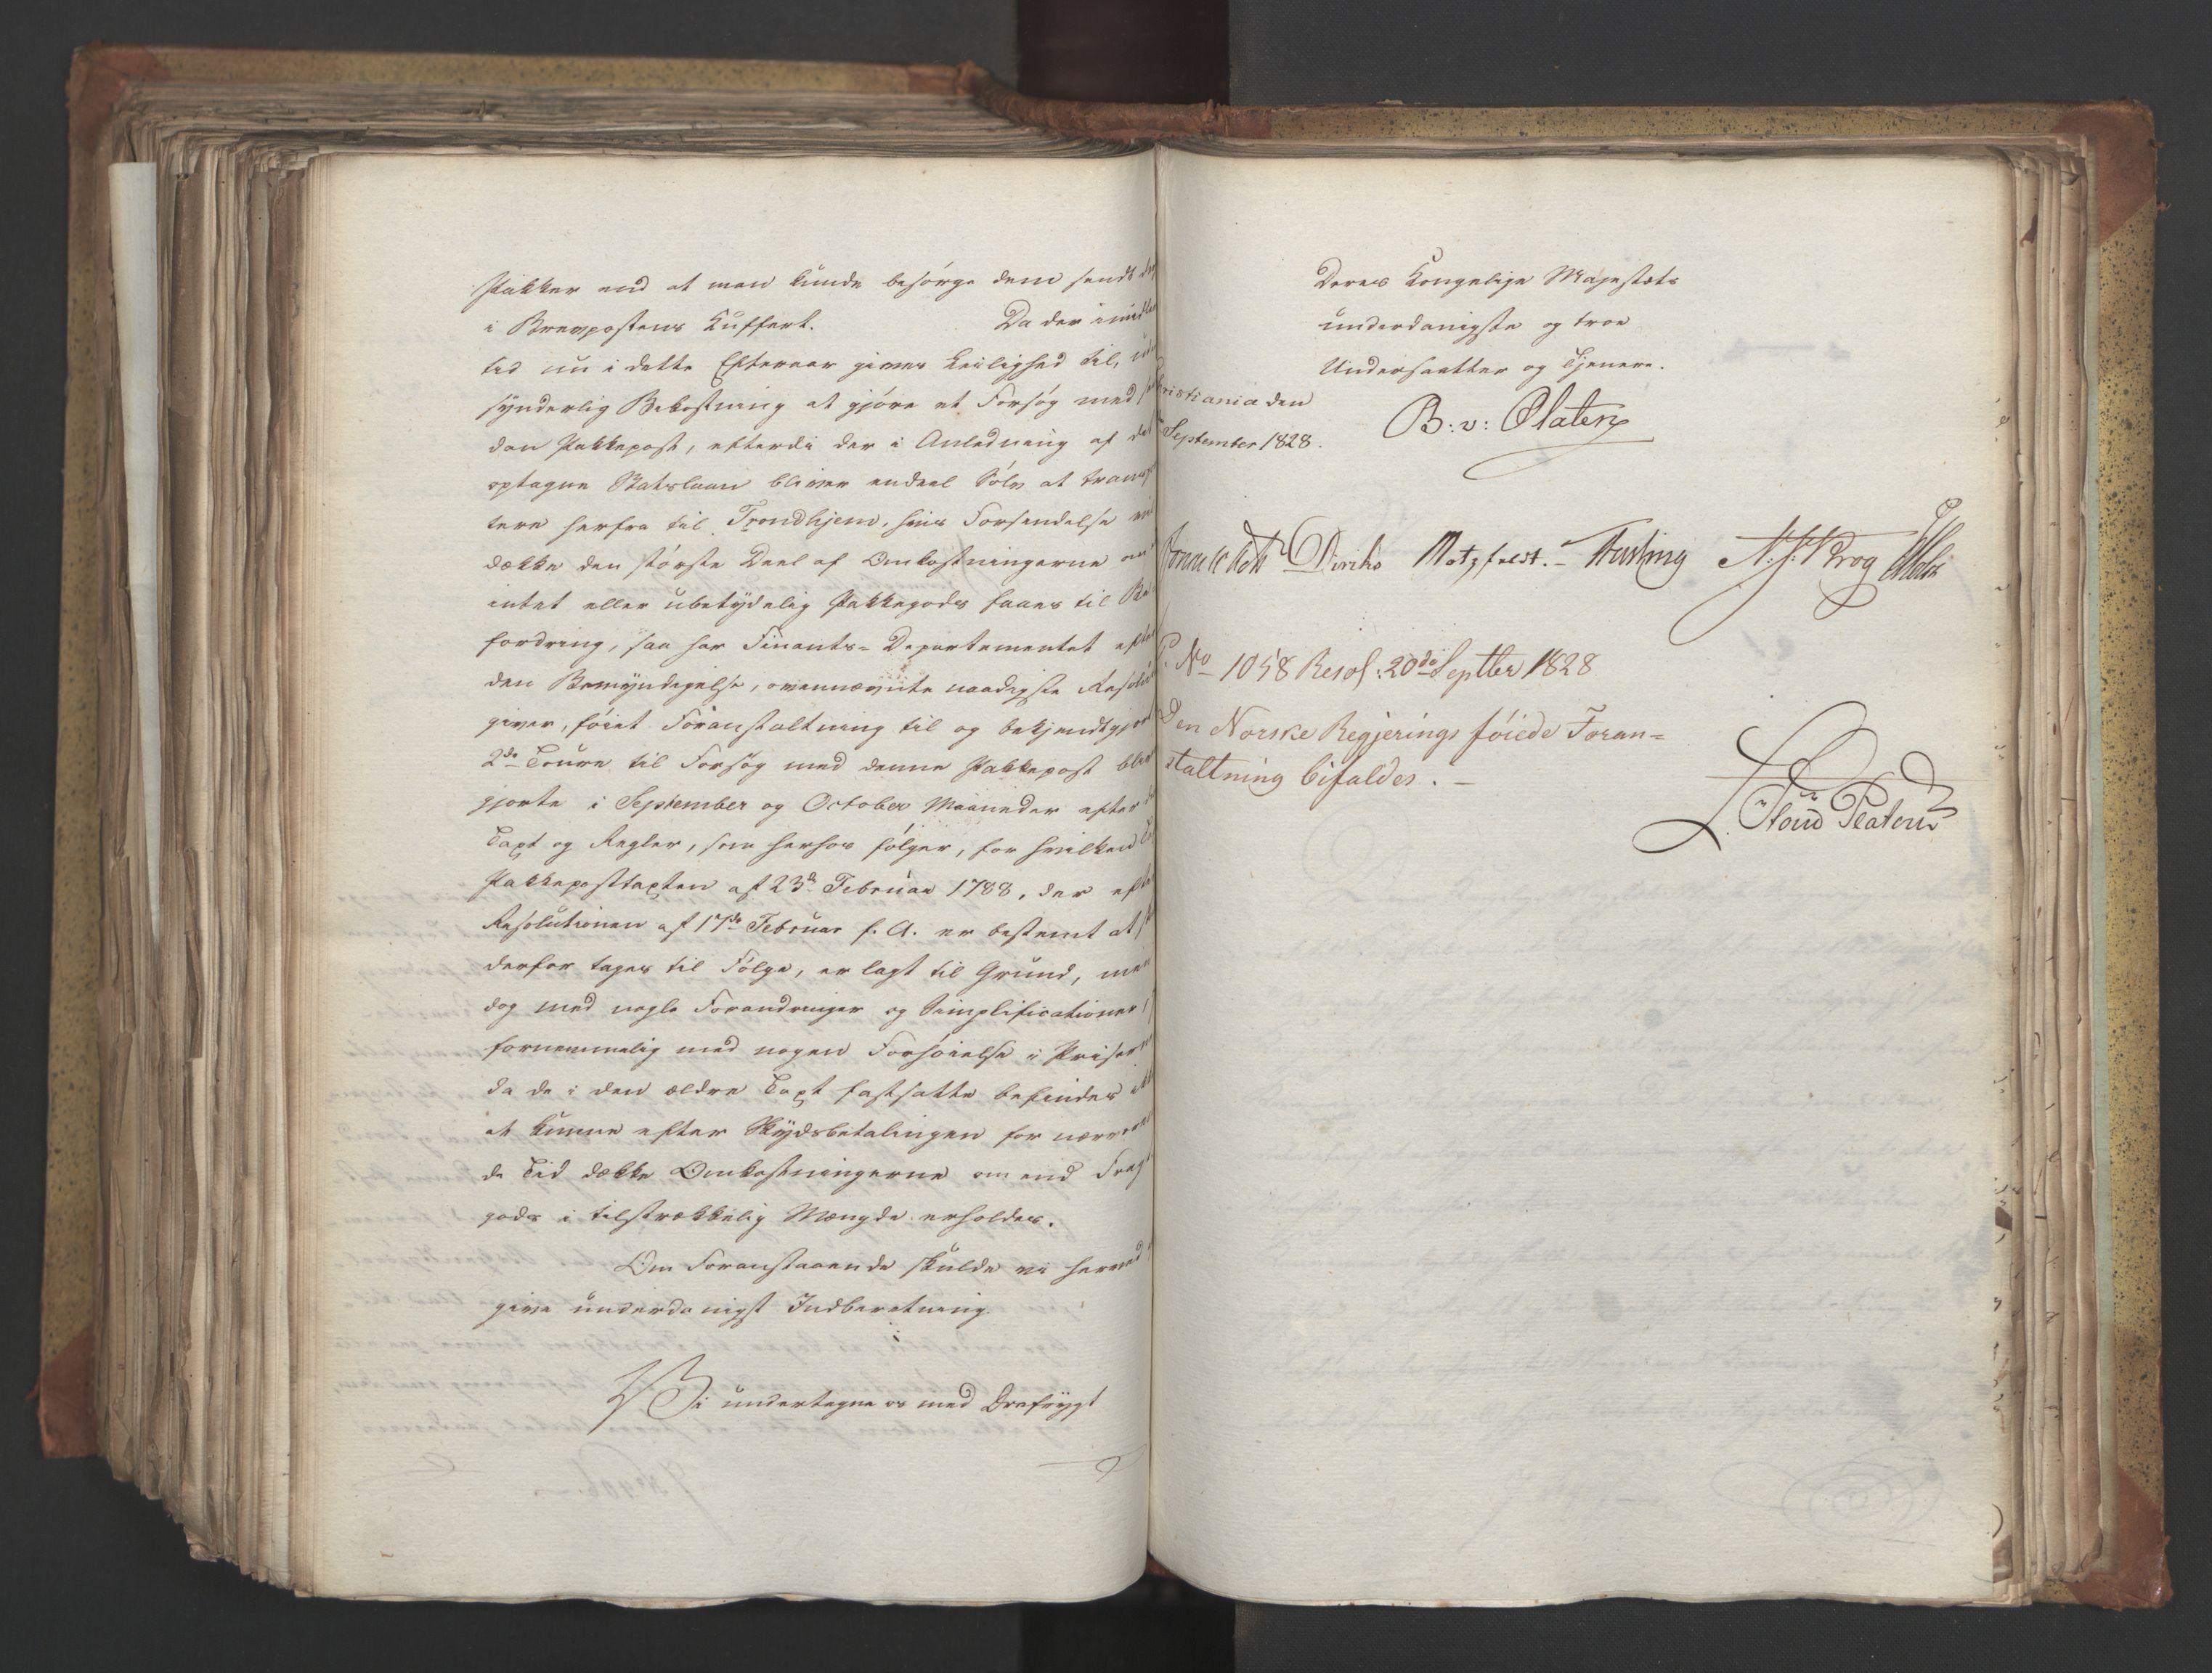 Pakker end at man kunde besørge dem sendt
i Brevpostens Kuffert. Da der imidler
tid nu i dette Efteraar gives Leilighed til, uden
synderlig Bekostning at gjøre et Forsøg med
dan Pakkepost, efterdi der i Anledning af det
optagne Statslaan bliver endeel Sølv at transpor
tere herfra til Trondhjem, hvis Forsendelse vil
dække den største Deel af Omkostningerne om
intet eller ubetydelig Pakkegods faaes til Be
fordring, saa har Finants-Departementet efter
den Bemyndigelse, ovennævnte naadigste Resolution
giver, føiet Foranstaltning til og bekjendtgjort
2de Toure til Forsøg med denne Pakkepost bliver
gjorte i September og October Maaneder efter
Taxt og Regler, som herhos følger, for hvilken
Pakkeposttaxten af 23d Februar 1788, der efter
Resolutionen af 17de Februar f. A. er bestemt at
derfor tages til Følge, er lagt til Grund, men
dog med nogle Forandringer og Simplificationer,
fornemmelig med nogen Forhøielse i Priserne
da de i den ældre Taxt fastsatte befindes ikke
at kunne efter Skydsbetalingen for nærværen
de Tid dække Omkostningerne om end Fragt
gods i tilstrækkelig Mængde erholdes.
Om Foranstaaende skulde vi herved
give underdanigst Indberetning.
Vi undertegne os med Ærefrygt
Deres Kongelige Majestæts
underdanigste og troe
Undersaatter og Tjenere.
Christiania den
September 1828.
B: v: Platen
Sommerfeldt Diriks Motzfeldt. Fasting N. J. Krog Holst
No 1058 Resol: 20de Septber 1828
Den Norske Regjerings føiede Foran=
staltning bifaldes. —
Baltzar v. Platen